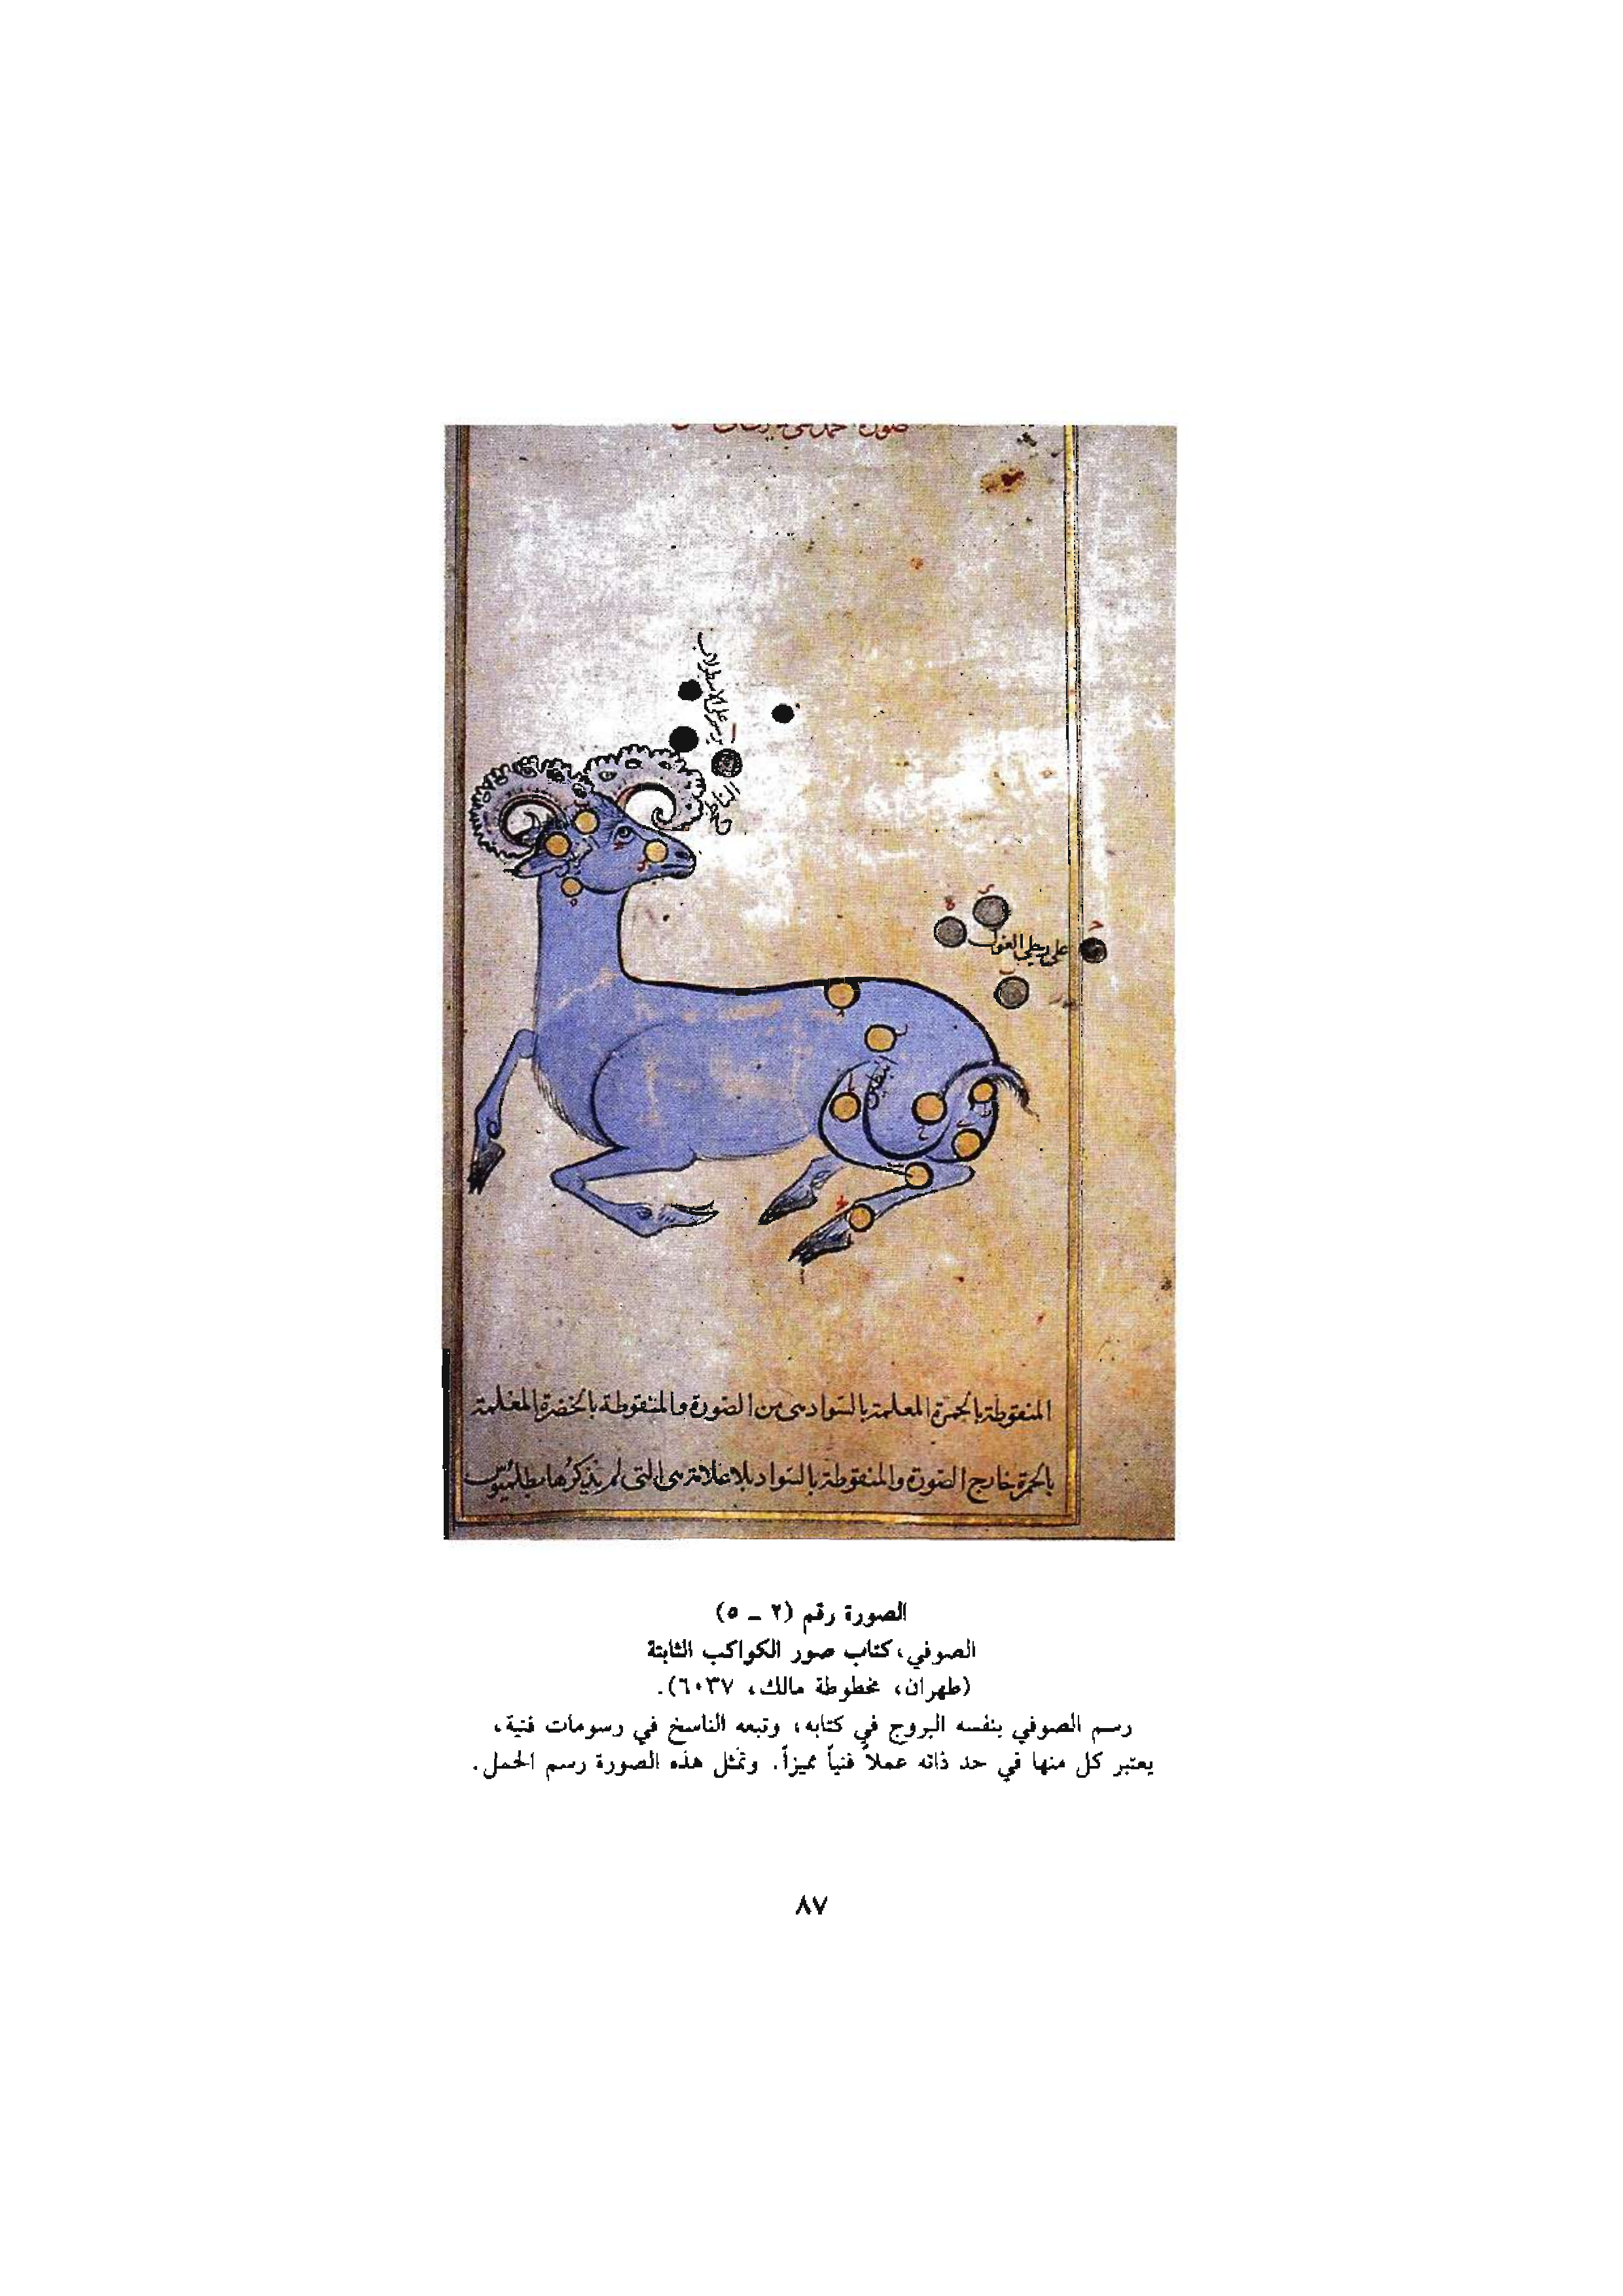 يرسم على الاسطرلاب
الناطح
على رجلى الغول
البطين
المنقوطة بالحمرة المعلمة بالسواد هى من الصورة والمنقوطة بالخضرة المعلمة
بالحمرة خارج الصورة والمنقوطة بالسواد بلا علامة هى التى لم يذكرها بطلميوس
الصورة رقم (٢ – ٥)
الصوفي، كتاب صور الكواكب الثابتة
(طهران، مخطوطة مالك، ٦٠٣٧).
رسم الصوفي بنفسه البروج في كتابه، وتبعه الناسخ في رسومات فنية،
يعتبر كل منها في حد ذاته عملاً فنياً مميزاً. وتمثل هذه الصورة رسم الحمل.
٨٧